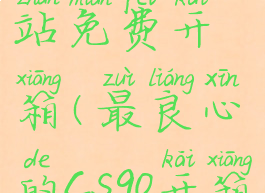 zhàn miǎn fèi kāi
站免费开
xiāng zuì liáng xīn
箱(最良心
de kāi xiāng
的CS90开箱